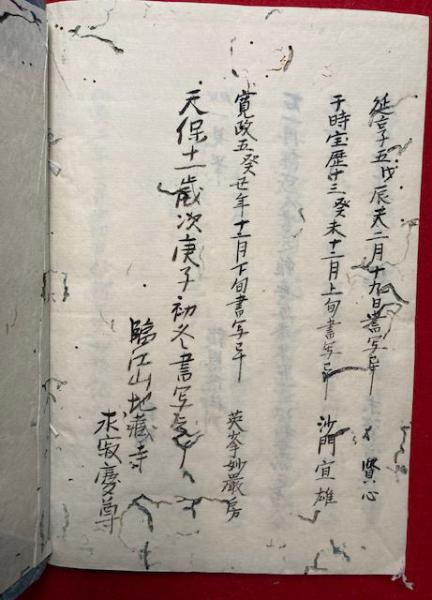 延享五戊辰天二月十九日書写畢
賢心
于時宝歴十三癸未十二月上旬書写畢
沙門宜雄
寛政五癸丑年十二月下旬書写畢
英峯妙厳房
天保十一歳次庚子初冬書写畢
臨江山地蔵寺
求寂慶尊